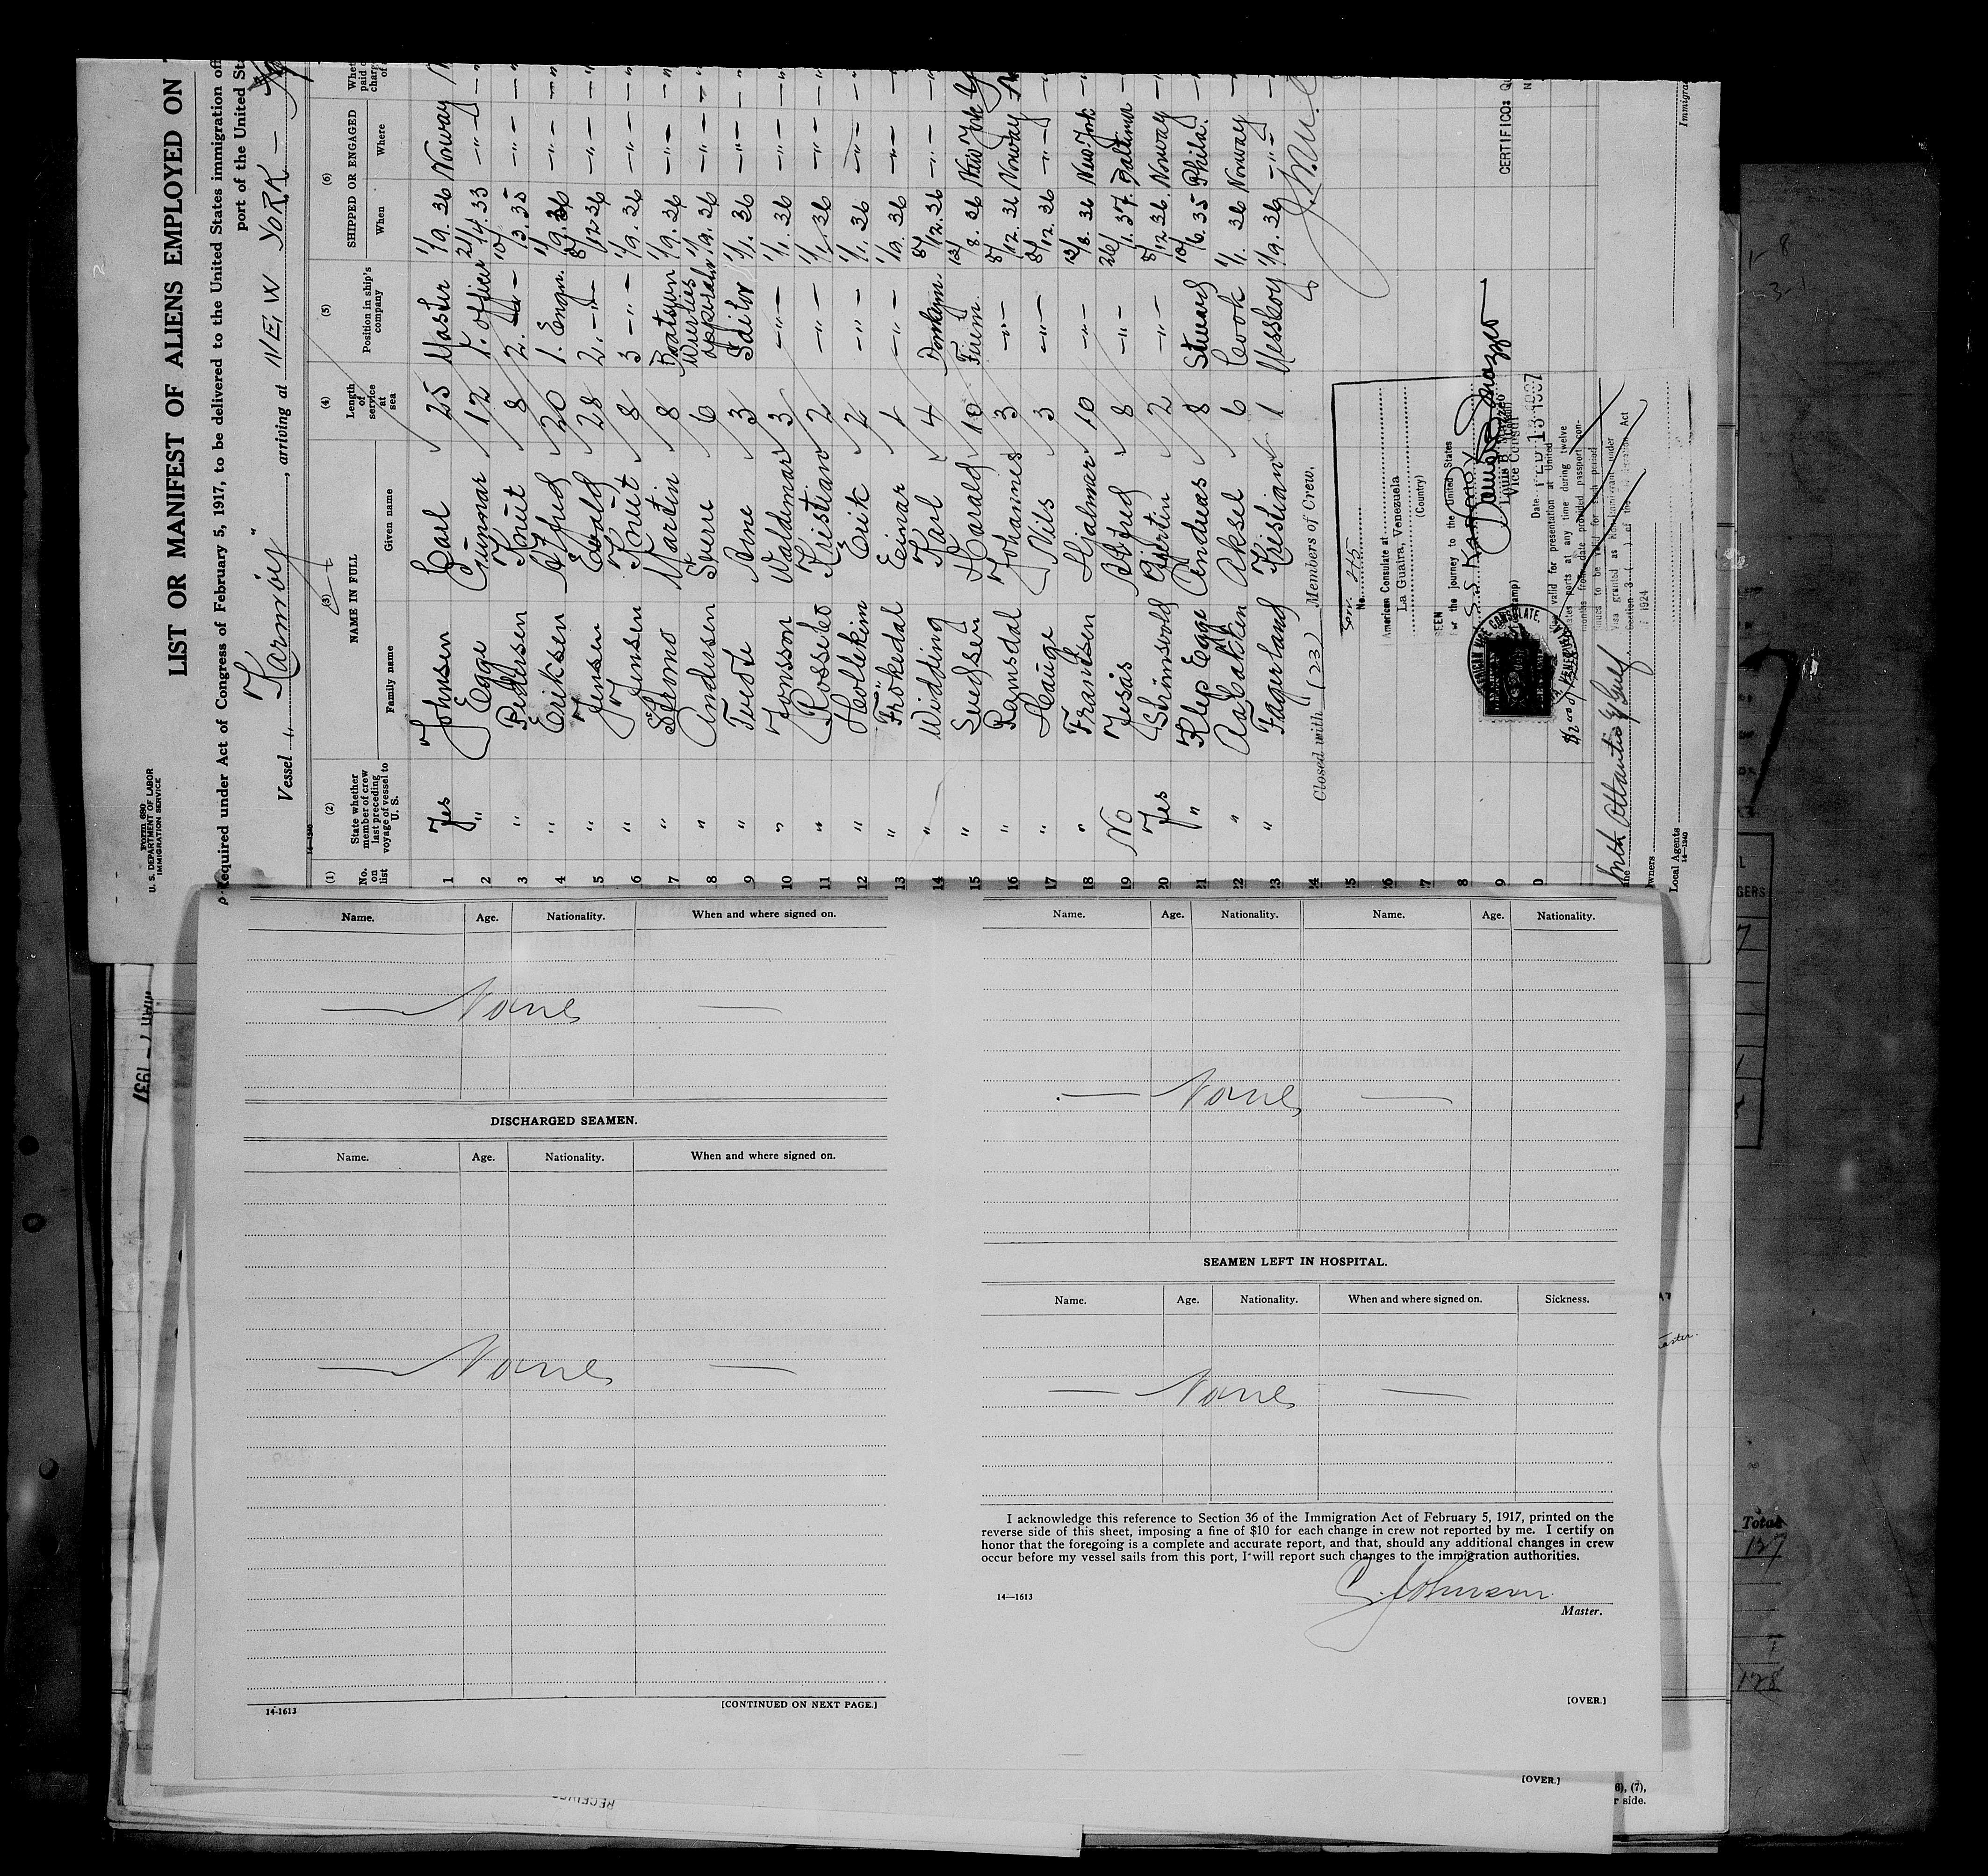 Form 680
U. S. DEPARTMENT OF LABOR
IMMIGRATION SERVICE
LIST OR MANIFEST OF ALIENS EMPLOYED ON
Required under Act of Congress of February 5, 1917, to be delivered to the United States immigration
port of the United
Vessel " Karmöy ", arriving at NEW YORK
(1) (2) (3) (4) (5) (6)
No. on list State whether member of crew last preceding voyage of vessel to U. S. NAME IN FULL Length of service at sea Position in ship's company SHIPPED OR ENGAGED
Family name Given name When Where
1 Yes Johnsen Carl 25 Master 1/9. 36 Norway
2 " Egge Gunnar 12 1. officer 33 -"-
3 " Pedersen Knut 8 2. -"- 35 -"-
4 " Eriksen Alfred 20 1. Engn. 1/9. 36 -"-
5 " Jensen Evald 28 2. -"- 8/12 36 -"-
6 " Jensen Knut 8 3 -"- 1/9. 36 -"-
7 " Martin 8 Boatsvn 1/9. 36 -"-
8 " Andersen Sverre 6 Wireles operator 1/9. 36 -"-
9 " Tvedt Arne 3 Sailor 1/1. 36 -"-
10 " Jonsson Waldemar 3 -"- 1/1. 36 -"-
11 " Rossebö Kristian 2 -"- 1/1. 36 -"-
12 " Erik 2 -"- 1/1. 36 -"-
13 " Frökedal Einar 1 -"- 1/9. 36 -"-
14 " Widding Karl 4 Donkeym. 8/12. 36 -"-
15 " Svendsen Harald 10 Firem. 12/8. 36 New York
16 " Ramsdal Johannes 3 -"- 8/12. 36 Norway
17 " Hauge Nils 3 -"- 8/12. 36 -"-
18 " Frantsen Hjalmer 10 -"- 12/8. 36 New York
19 No Jesås Alfred 8 -"- 26/1. 37. Baltimor
20 Yes Gjertin 2 -"- 8/12 36. Norway
21 " Klep Egge Andreas 8 Steward 10/6. 35 Phila.
22 " Aabakken Aksel 6 Cook 1/1. 36 Norway
23 " Fagerland Kristian 1 Messboy 1/9. 36 -"-
24 Closed with (23) Members of Crew.
25
26
27
8
9
0
CERTIFICO:
No. 245
American Consulate at
La Guaira, Venezuela
(Country)
SEEN
for the journey to the United States
S.S. Karmoy
Louis B. Mazzeo
Vice Consul
Date FEB 13 1937
valid for presentation at United
States ports at any time during twelve
months from date provided passport con-
tinues to be valid for such period
Visa granted as Nonimmigrant under
Section 3 ( ) of the Immigration Act
1924
North Atlantic & Gulf
Owners
Local Agents
14-1240
Name. Age. Nationality. When and where signed on.
— None —
DISCHARGED SEAMEN.
Name. Age. Nationality. When and where signed on.
— None —
14-1613 [CONTINUED ON NEXT PAGE.]
Name. Age. Nationality. Name. Age. Nationality.
— None —
SEAMEN LEFT IN HOSPITAL.
Name. Age. Nationality. When and where signed on. Sickness.
— None —
I acknowledge this reference to Section 36 of the Immigration Act of February 5, 1917, printed on the
reverse side of this sheet, imposing a fine of $10 for each change in crew not reported by me. I certify on
honor that the foregoing is a complete and accurate report, and that, should any additional changes in crew
occur before my vessel sails from this port, I will report such changes to the immigration authorities.
C. Johnsen
14—1613 Master.
[OVER.]
[OVER.]
6), (7),
r side.
Total
127
1
128
1937